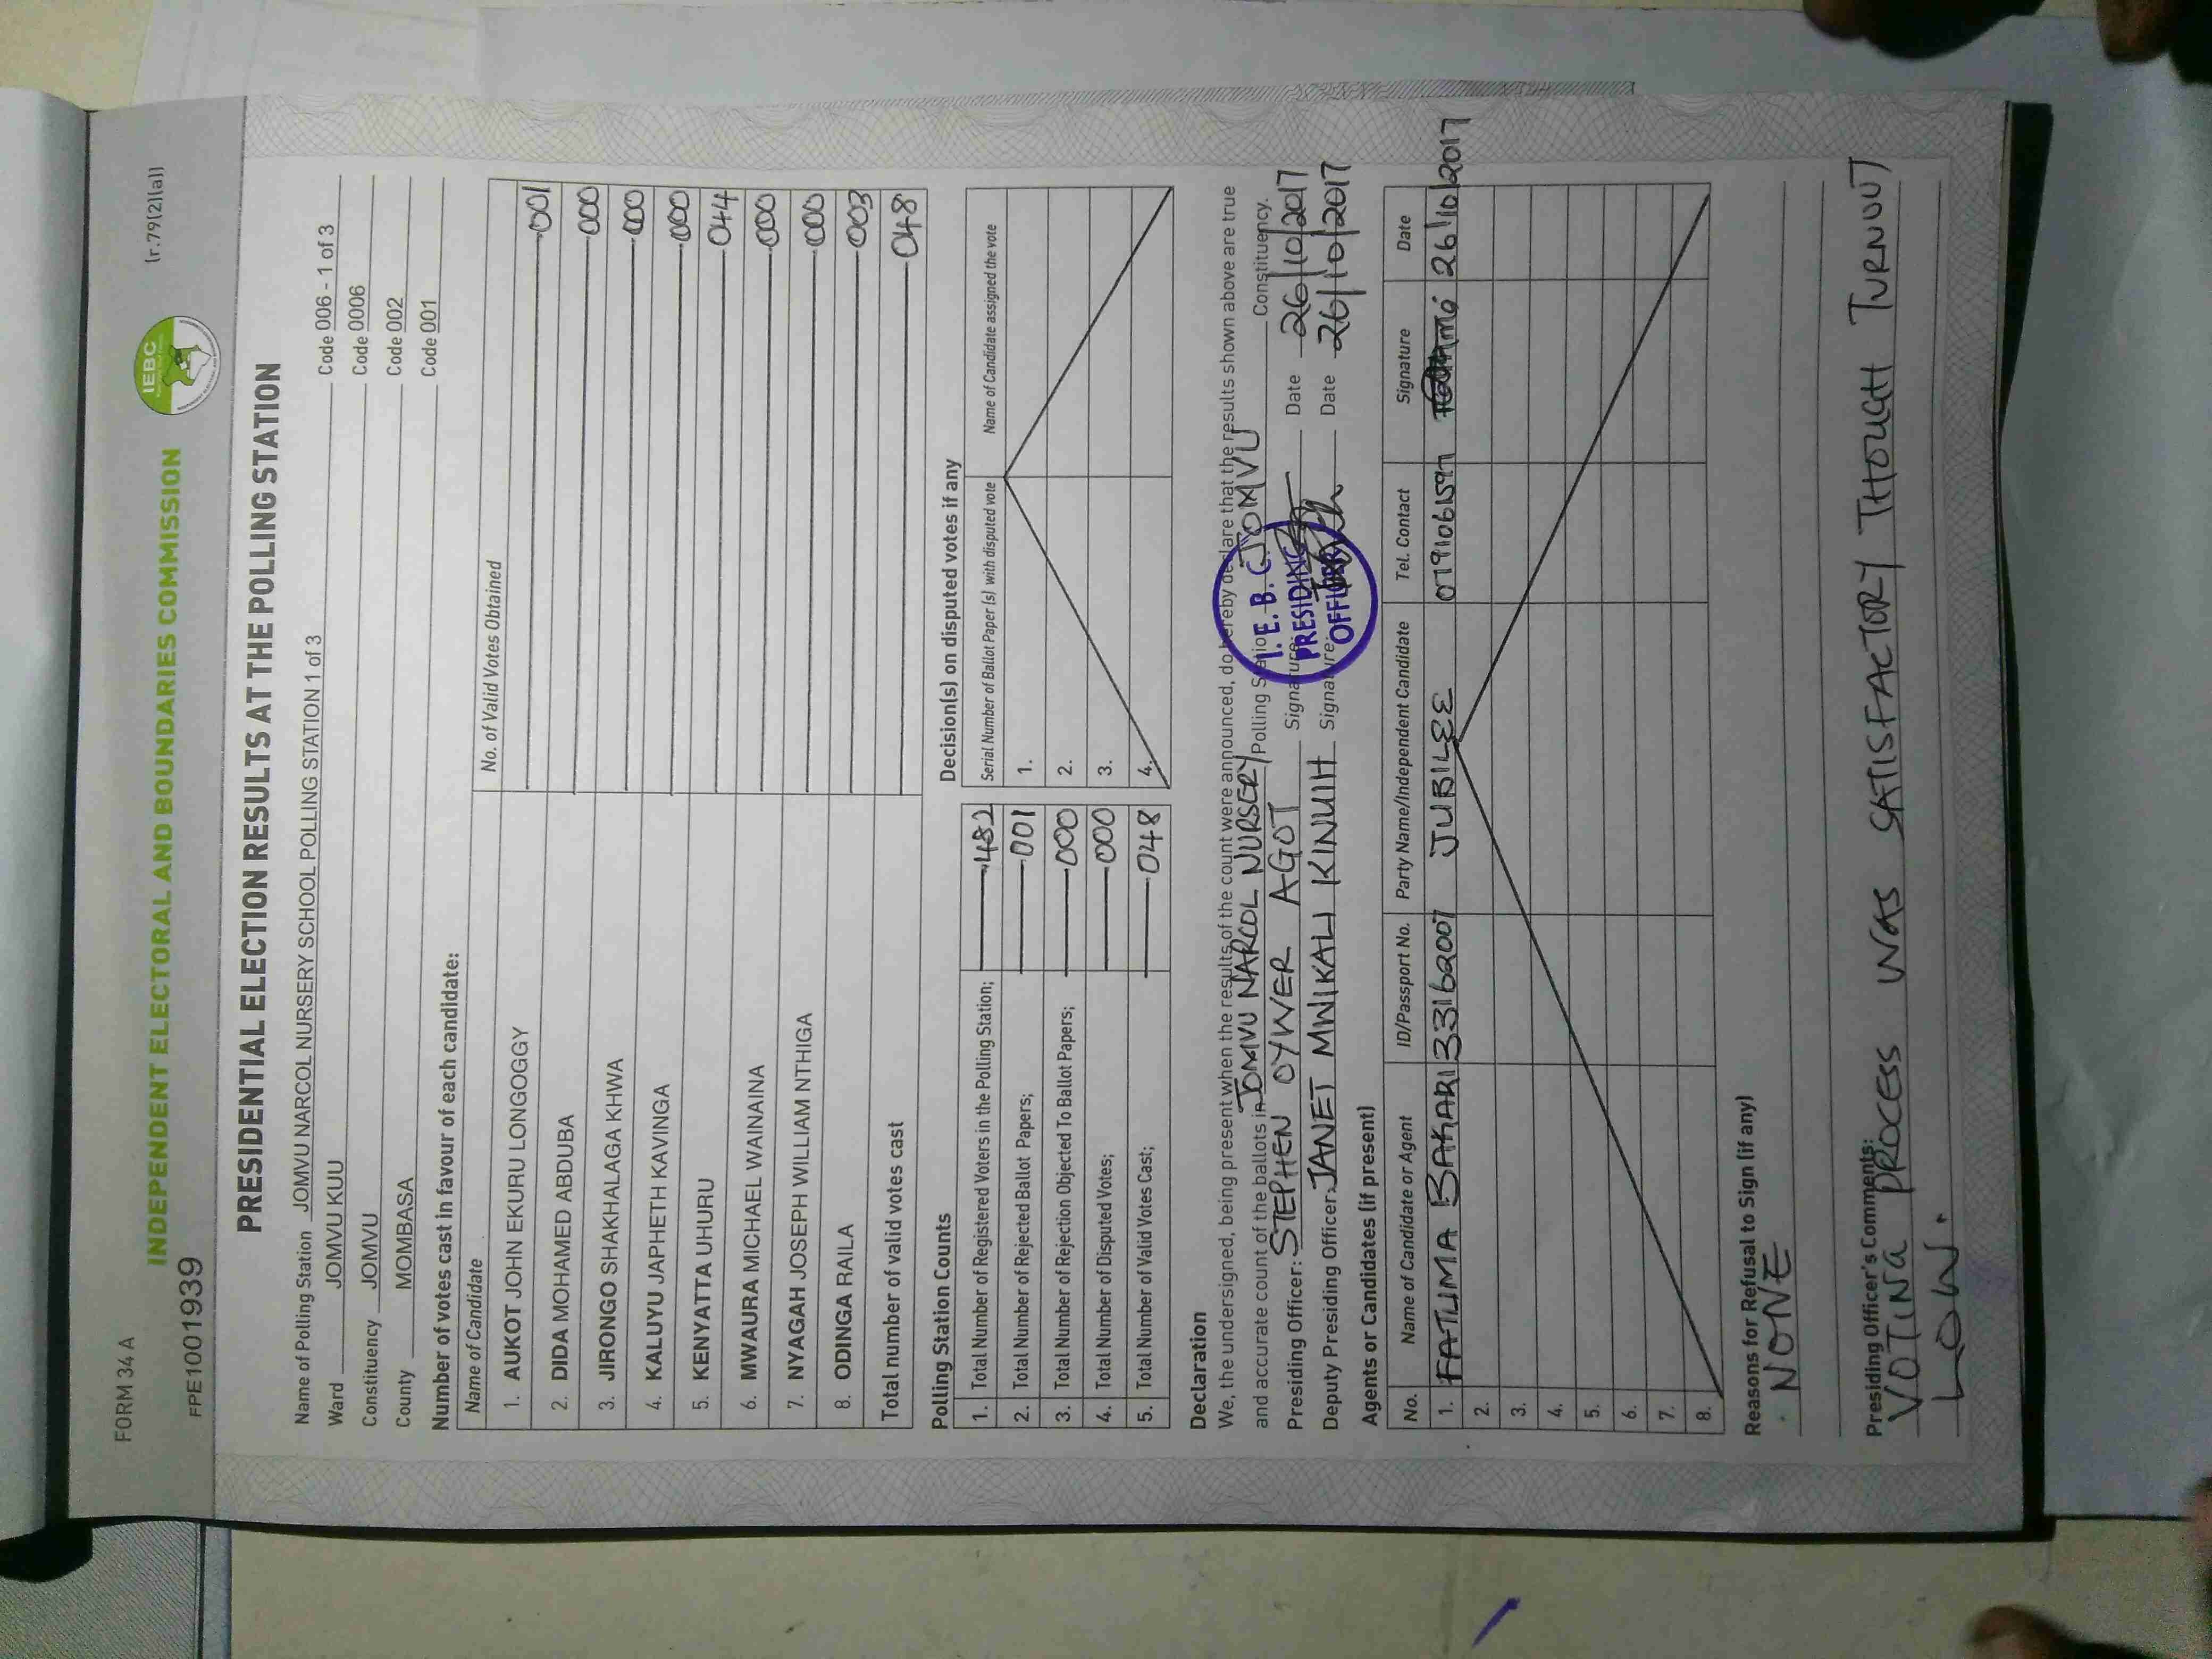 FORM 34 A
(r.79(2)(a))
IEBC
INDEPENDENT ELECTORAL AND BOUNDARIES COMMISSION
FPE1001939
PRESIDENTIAL ELECTION RESULTS AT THE POLLING STATION
Name of Polling Station JOMVU NARCOL NURSERY SCHOOL POLLING STATION 1 of 3 Code 006 - 1 of 3
Ward JOMVU KUU Code 0006
Constituency JOMVU Code 002
County MOMBASA Code 001
Number of votes cast in favour of each candidate:
Name of Candidate No. of Valid Votes Obtained
1. AUKOT JOHN EKURU LONGOGGY 001
2. DIDA MOHAMED ABDUBA 000
3. JIRONGO SHAKHALAGA KHWA 000
4. KALUYU JAPHETH KAVINGA 000
5. KENYATTA UHURU 044
6. MWAURA MICHAEL WAINAINA 000
7. NYAGAH JOSEPH WILLIAM NTHIGA 000
8. ODINGA RAILA 003
Total number of valid votes cast 048
Polling Station Counts
1. Total Number of Registered Voters in the Polling Station; 482
2. Total Number of Rejected Ballot Papers; 001
3. Total Number of Rejection Objected To Ballot Papers; 000
4. Total Number of Disputed Votes; 000
5. Total Number of Valid Votes Cast; 048
Decision(s) on disputed votes if any
Serial Number of Ballot Paper (s) with disputed vote Name of Candidate assigned the vote
1.
2.
3.
4.
Declaration
We, the undersigned, being present when the results of the count were announced, do hereby declare that the results shown above are true
and accurate count of the ballots in JOMVU NARCOL NURSERY Polling Station JOMVU Constituency.
Presiding Officer: STEPHEN OYWER AGOT Signature: Date 26/10/2017
Deputy Presiding Officer: JANET MWIKALI KINUIH Signature: Date 26/10/2017
I.E.B.C.
PRESIDING
OFFICER
Agents or Candidates (if present)
No. Name of Candidate or Agent ID/Passport No. Party Name/Independent Candidate Tel. Contact Signature Date
1. FATUMA BAKARI 33162007 JUBILEE 26/10/2017
2.
3.
4.
5.
6.
7.
8.
Reasons for Refusal to Sign (if any)
NONE
Presiding Officer's Comments:
VOTING PROCESS WAS SATISFACTORY THOUGH TURNOUT
LOW.